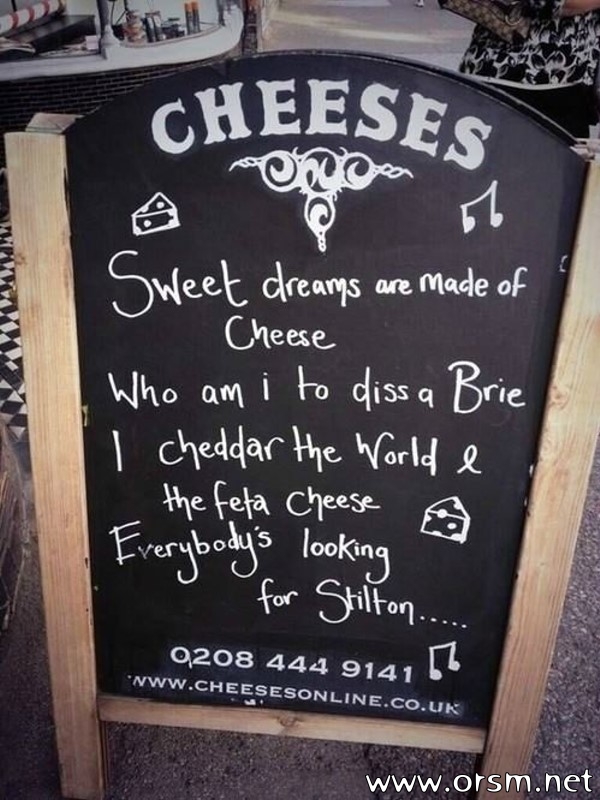 CHEESES
Sweet dreams are made of
Cheese
Who am i to diss a Brie
I cheddar the World &
the feta cheese
Everybody's looking
for Stilton.....
0208 444 9141
WWW.CHEESESONLINE.CO.UK
www.orsm.net